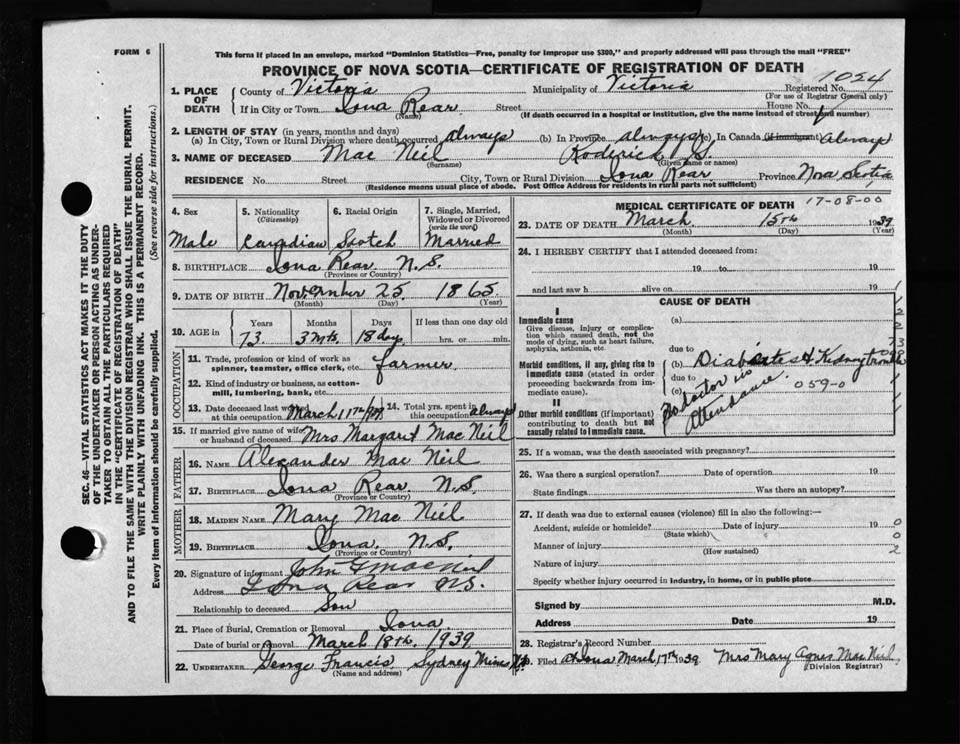 FORM 6
This form if placed in an envelope, marked "Dominion Statistics—Free, penalty for improper use $300," and properly addressed will pass through the mail "FREE"
PROVINCE OF NOVA SCOTIA—CERTIFICATE OF REGISTRATION OF DEATH
1. PLACE OF DEATH
County of Victoria Municipality of Victoria Registered No. 1024
(For use of Registrar General only)
If in City or Town Iona Rear Street House No.
(Name) (If death occurred in a hospital or institution, give the name instead of street and number)
2. LENGTH OF STAY (in years, months and days)
(a) In City, Town or Rural Division where death occurred always (b) In Province always (c) In Canada (if immigrant) Always
3. NAME OF DECEASED Mac Neil Roderick S.
(Surname) (Given name or names)
RESIDENCE No. Street City, Town or Rural Division Iona Rear Province Nova Scotia
(Residence means usual place of abode. Post Office Address for residents in rural parts not sufficient)
4. Sex
Male
5. Nationality
(Citizenship)
Canadian
6. Racial Origin
Scotch
7. Single, Married, Widowed or Divorced
(write the word)
Married
8. BIRTHPLACE Iona Rear N.S.
(Province or Country)
9. DATE OF BIRTH November 25 1865
(Month) (Day) (Year)
10. AGE in
Years Months Days If less than one day old
73 3 mts. 18 days hrs. or min.
OCCUPATION
11. Trade, profession or kind of work as spinner, teamster, office clerk, etc. farmer
12. Kind of industry or business, as cotton-mill, lumbering, bank, etc.
13. Date deceased last worked at this occupation March 11th/39
14. Total yrs. spent in this occupation always
15. If married give name of wife or husband of deceased Mrs Margaret Mac Neil
FATHER
16. NAME Alexander Mac Neil
17. BIRTHPLACE Iona Rear N.S.
(Province or Country)
MOTHER
18. MAIDEN NAME Mary Mac Neil
19. BIRTHPLACE Iona. N.S.
(Province or Country)
20. Signature of informant John G MacNeil
Address Iona Rear N.S.
Relationship to deceased Son
21. Place of Burial, Cremation or Removal Iona
Date of burial or removal March 18th. 1939
22. UNDERTAKER George Francis, Sydney Mines N.S.
(Name and address)
MEDICAL CERTIFICATE OF DEATH 17-08-00
23. DATE OF DEATH March 15th 1939
(Month) (Day) (Year)
24. I HEREBY CERTIFY that I attended deceased from:
19 to 19
and last saw h alive on 19
CAUSE OF DEATH
I
Immediate cause
Give disease, injury or complication which caused death, not the mode of dying, such as heart failure, asphyxia, asthenia, etc.
(a)
due to
Morbid conditions, if any, giving rise to immediate cause (stated in order proceeding backwards from immediate cause).
(b) Diabetes & Kidney trouble
due to
(c) 059-0
No doctor in Attendance.
II
Other morbid conditions (if important) contributing to death but not causally related to immediate cause.
25. If a woman, was the death associated with pregnancy?
26. Was there a surgical operation? Date of operation 19
State findings Was there an autopsy?
27. If death was due to external causes (violence) fill in also the following:—
Accident, suicide or homicide? Date of injury 19 0
(State which) 0
Manner of injury 2
(How sustained)
Nature of injury
Specify whether injury occurred in industry, in home, or in public place
Signed by M.D.
Address Date 19
28. Registrar's Record Number
29. Filed at Iona March 17th 1939 Mrs Mary Agnes Mac Neil
(Division Registrar)
SEC. 46—VITAL STATISTICS ACT MAKES IT THE DUTY
OF THE UNDERTAKER OR PERSON ACTING AS UNDER-
TAKER TO OBTAIN ALL THE PARTICULARS REQUIRED
IN THE "CERTIFICATE OF REGISTRATION OF DEATH"
AND TO FILE THE SAME WITH THE DIVISION REGISTRAR WHO SHALL ISSUE THE BURIAL PERMIT.
WRITE PLAINLY WITH UNFADING INK. THIS IS A PERMANENT RECORD.
Every item of Information should be carefully supplied. (See reverse side for instructions.)